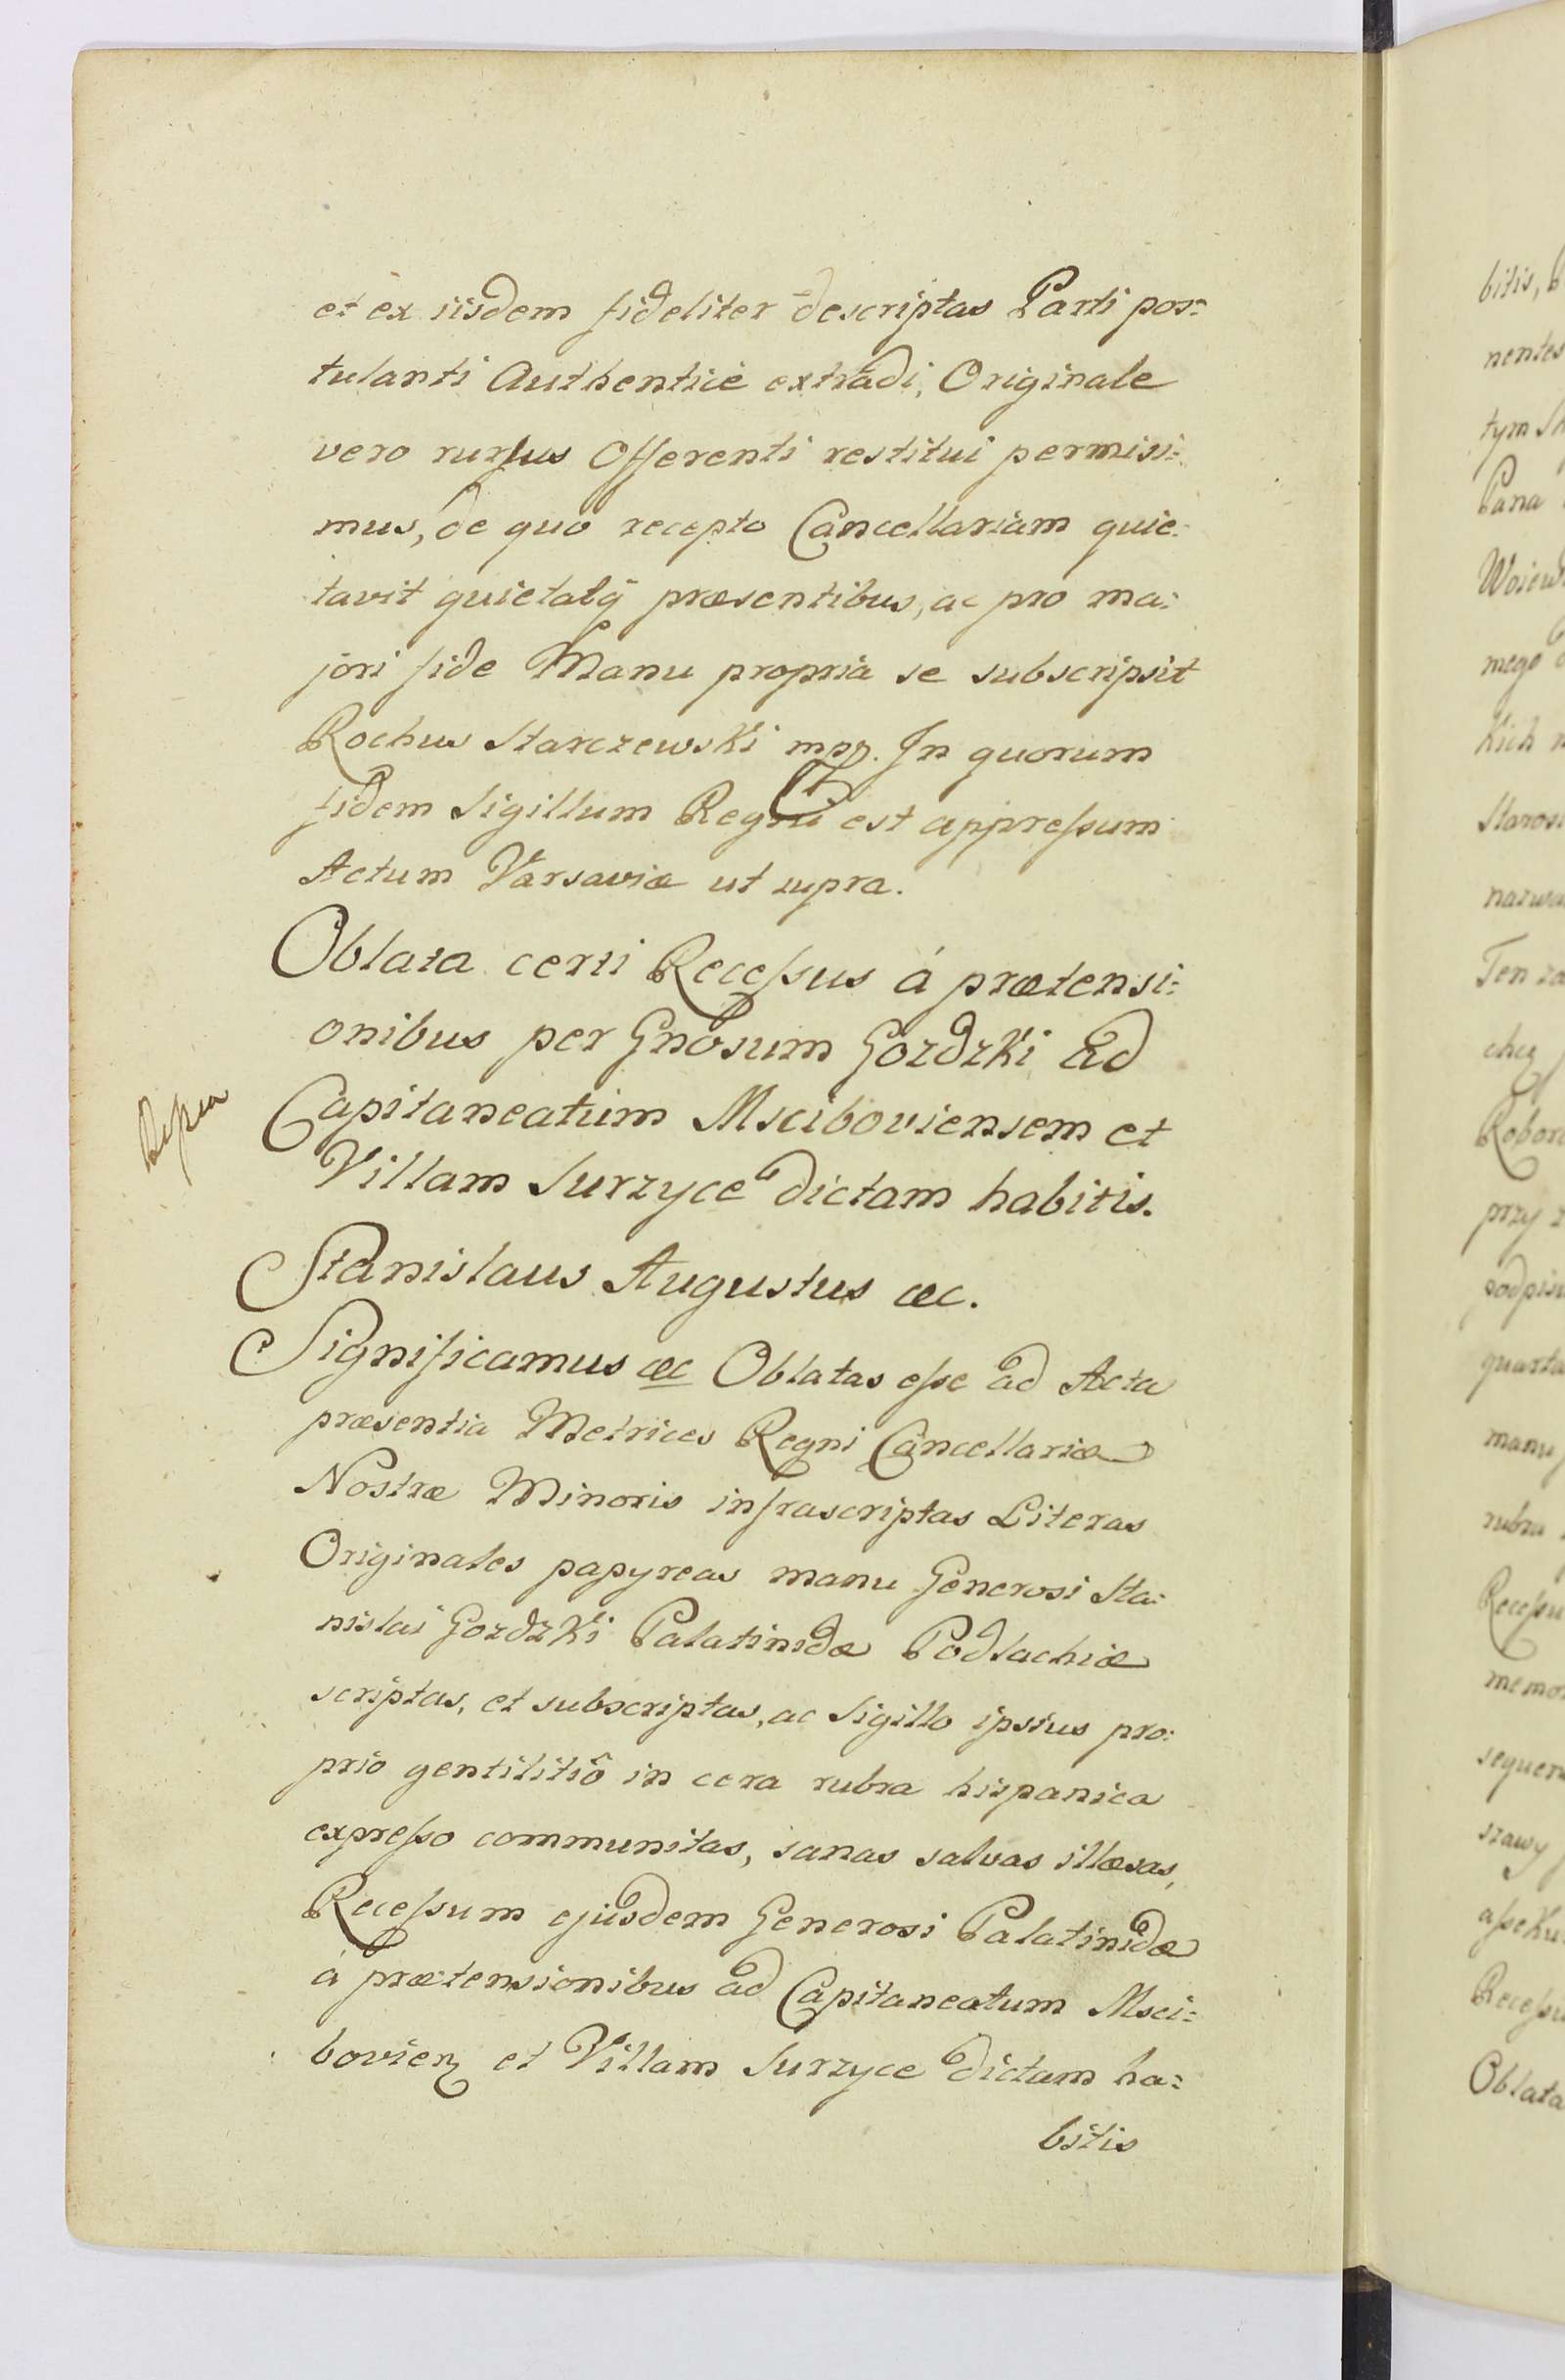 et ex iisdem fideliter descriptas Parti pos=
tulanti Authenticè extradi, Originale
vero rursus Offerenti restitui permisi=
mus, de quo recepto Cancellariam quie=
tavit quietatq̃ præsentibus, ac pro ma=
jori fide Manu propria se subscripsit
Rochus Starczewski mpp. In quorum
fidem Sigillum Regni est appreſsum
Actum Varsaviæ ut supra.
Oblata certi Receſsus á prætensi=
onibus per Gnosum Gozdzki ad
Capitaneatum Msciboviensem et
Villam Surzyce dictam habitis.
Stanislaus Augustus &c.
Significamus &c Oblatas eſse ad Acta
præsentia Metrices Regni Cancellariæ
Nostræ Minoris infrascriptas Literas
Originales papyreas manu Generosi Sta=
nislai Gozdzki Palatinidæ Podlachiæ
scriptas, et subscriptas, ac Sigillo ipsius pro=
prio gentilitiô in cera rubra hispanica
expreſso communitas, sanas salvas illæsas,
Receſsum ejusdem Generosi Palatinidæ
á prætensionibus ad Capitaneatum Msci=
bovien et Villam Surzyce dictam ha=
bitis
bitis,
nentes
tym
Pana
mego
kich
Staros
nazwa
Ten za
chcę
Robor
przy
podpis
quarta
manu
rubra
Receſsu
memor
sequen
szawy
aſseku
Receſsu
Oblata